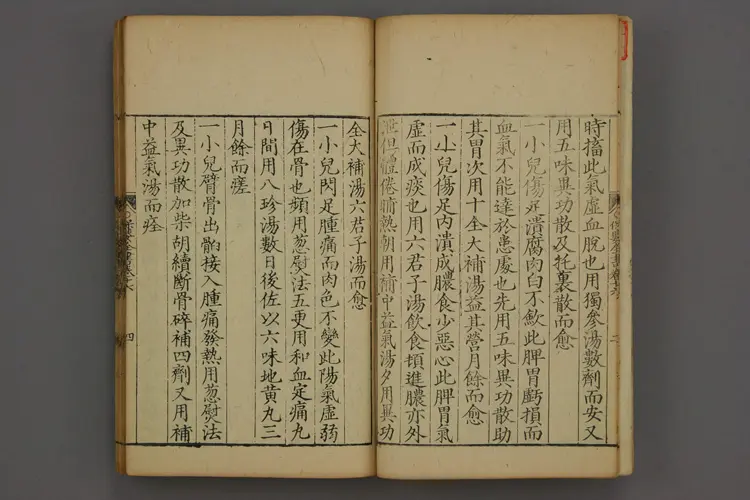 時搐此氣虛血脫也用獨參湯數劑而安又
用五味異功散及托裏散而愈
一小兒傷牙潰腐肉白不斂此脾胃虧損而
血氣不能達於患處也先用五味異功散助
其胃次用十全大補湯益其營月餘而愈
一小兒傷足內潰成膿食少惡心此脾胃氣
虛而成痰也用六君子湯飲食頓進膿亦外
泄但體倦晡熱朝用補中益氣湯夕用異功
全大補湯六君子湯而愈
一小兒閃足腫痛而肉色不變此陽氣虛弱
傷在骨也頻用葱熨法五更用和血定痛丸
日間用八珍湯數日後佐以六味地黄丸三
月餘而瘥
一小兒臂骨出䯊接入腫痛發熱用葱熨法
及異功散加柴胡續斷骨碎補四劑又用補
中益氣湯而痊
四